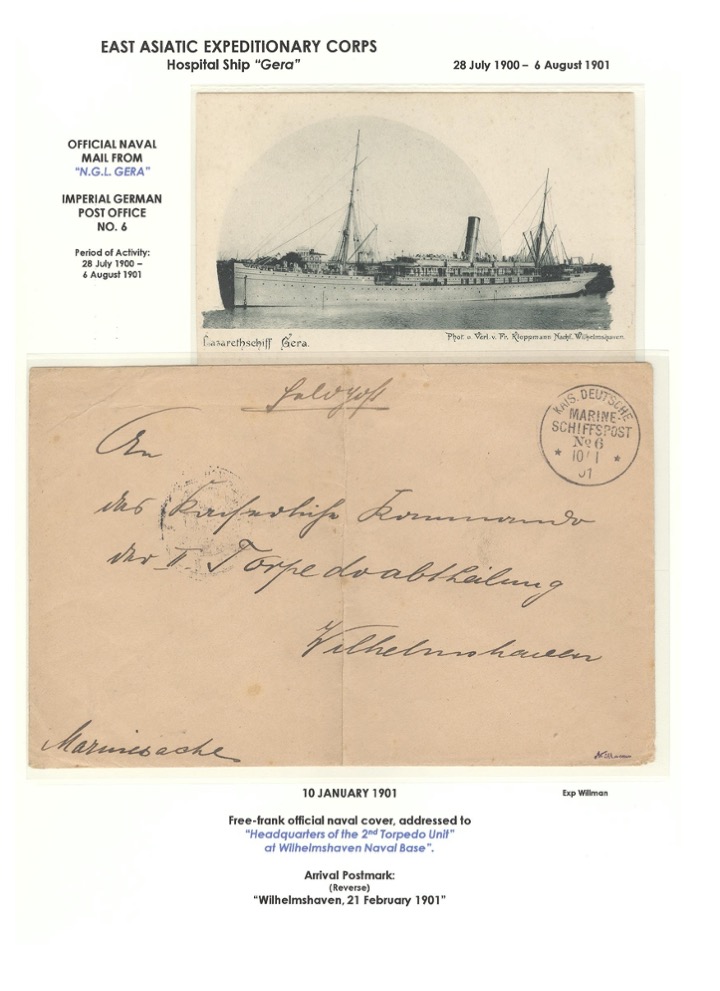 EAST ASIATIC EXPEDITIONARY CORPS
Hospital Ship “Gera”
28 July 1900 – 6 August 1901
OFFICIAL NAVAL
MAIL FROM
“N.G.L. GERA”
IMPERIAL GERMAN
POST OFFICE
NO. 6
Period of Activity:
28 July 1900 –
6 August 1901
Lazarethschiff Gera.
Phot. u. Verl. v. Fr. Kloppmann Nachf. Wilhelmshaven.
Feldpost
KAIS. DEUTSCHE
MARINE-
SCHIFFSPOST
No 6
* 10/1 *
01
An
das Kaiserliche Kommando
der II Torpedoabtheilung
Wilhelmshaven
Marinesache
10 JANUARY 1901
Exp Willman
Free-frank official naval cover, addressed to
“Headquarters of the 2nd Torpedo Unit”
at Wilhelmshaven Naval Base”.
Arrival Postmark:
(Reverse)
“Wilhelmshaven, 21 February 1901”